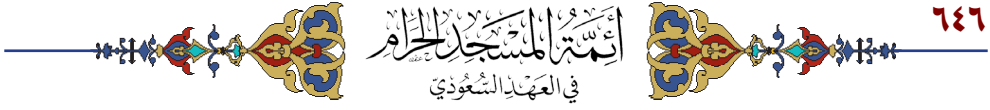 ٦٤٦
أَئِمَّةُ المَسْجِدِ الحَرَامِ
فِي العَهْدِ السُّعُودِيّ